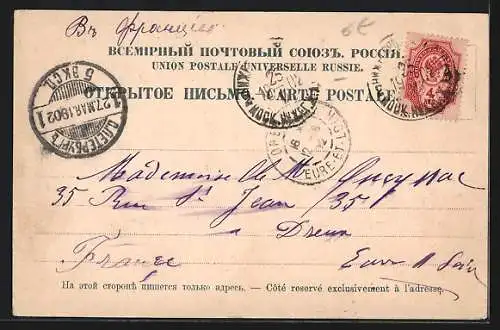 Въ Францію 6€
ВСЕМІРНЫЙ ПОЧТОВЫЙ СОЮЗЪ. РОССІЯ.
UNION POSTALE UNIVERSELLE RUSSIE.
ОТКРЫТОЕ ПИСЬМО. CARTE POSTALE.
С.ПЕТЕРБУРГЪ
5 ЭКСП.
27.МАР.1902
1
25
DREUX
EURE-ET-L
4
Mademoiselle M.
35 Rue St Jean 35
à Dreux
France Eure & Loir
На этой сторонѣ пишется только адресъ. — Côté reservé exclusivement à l'adresse.